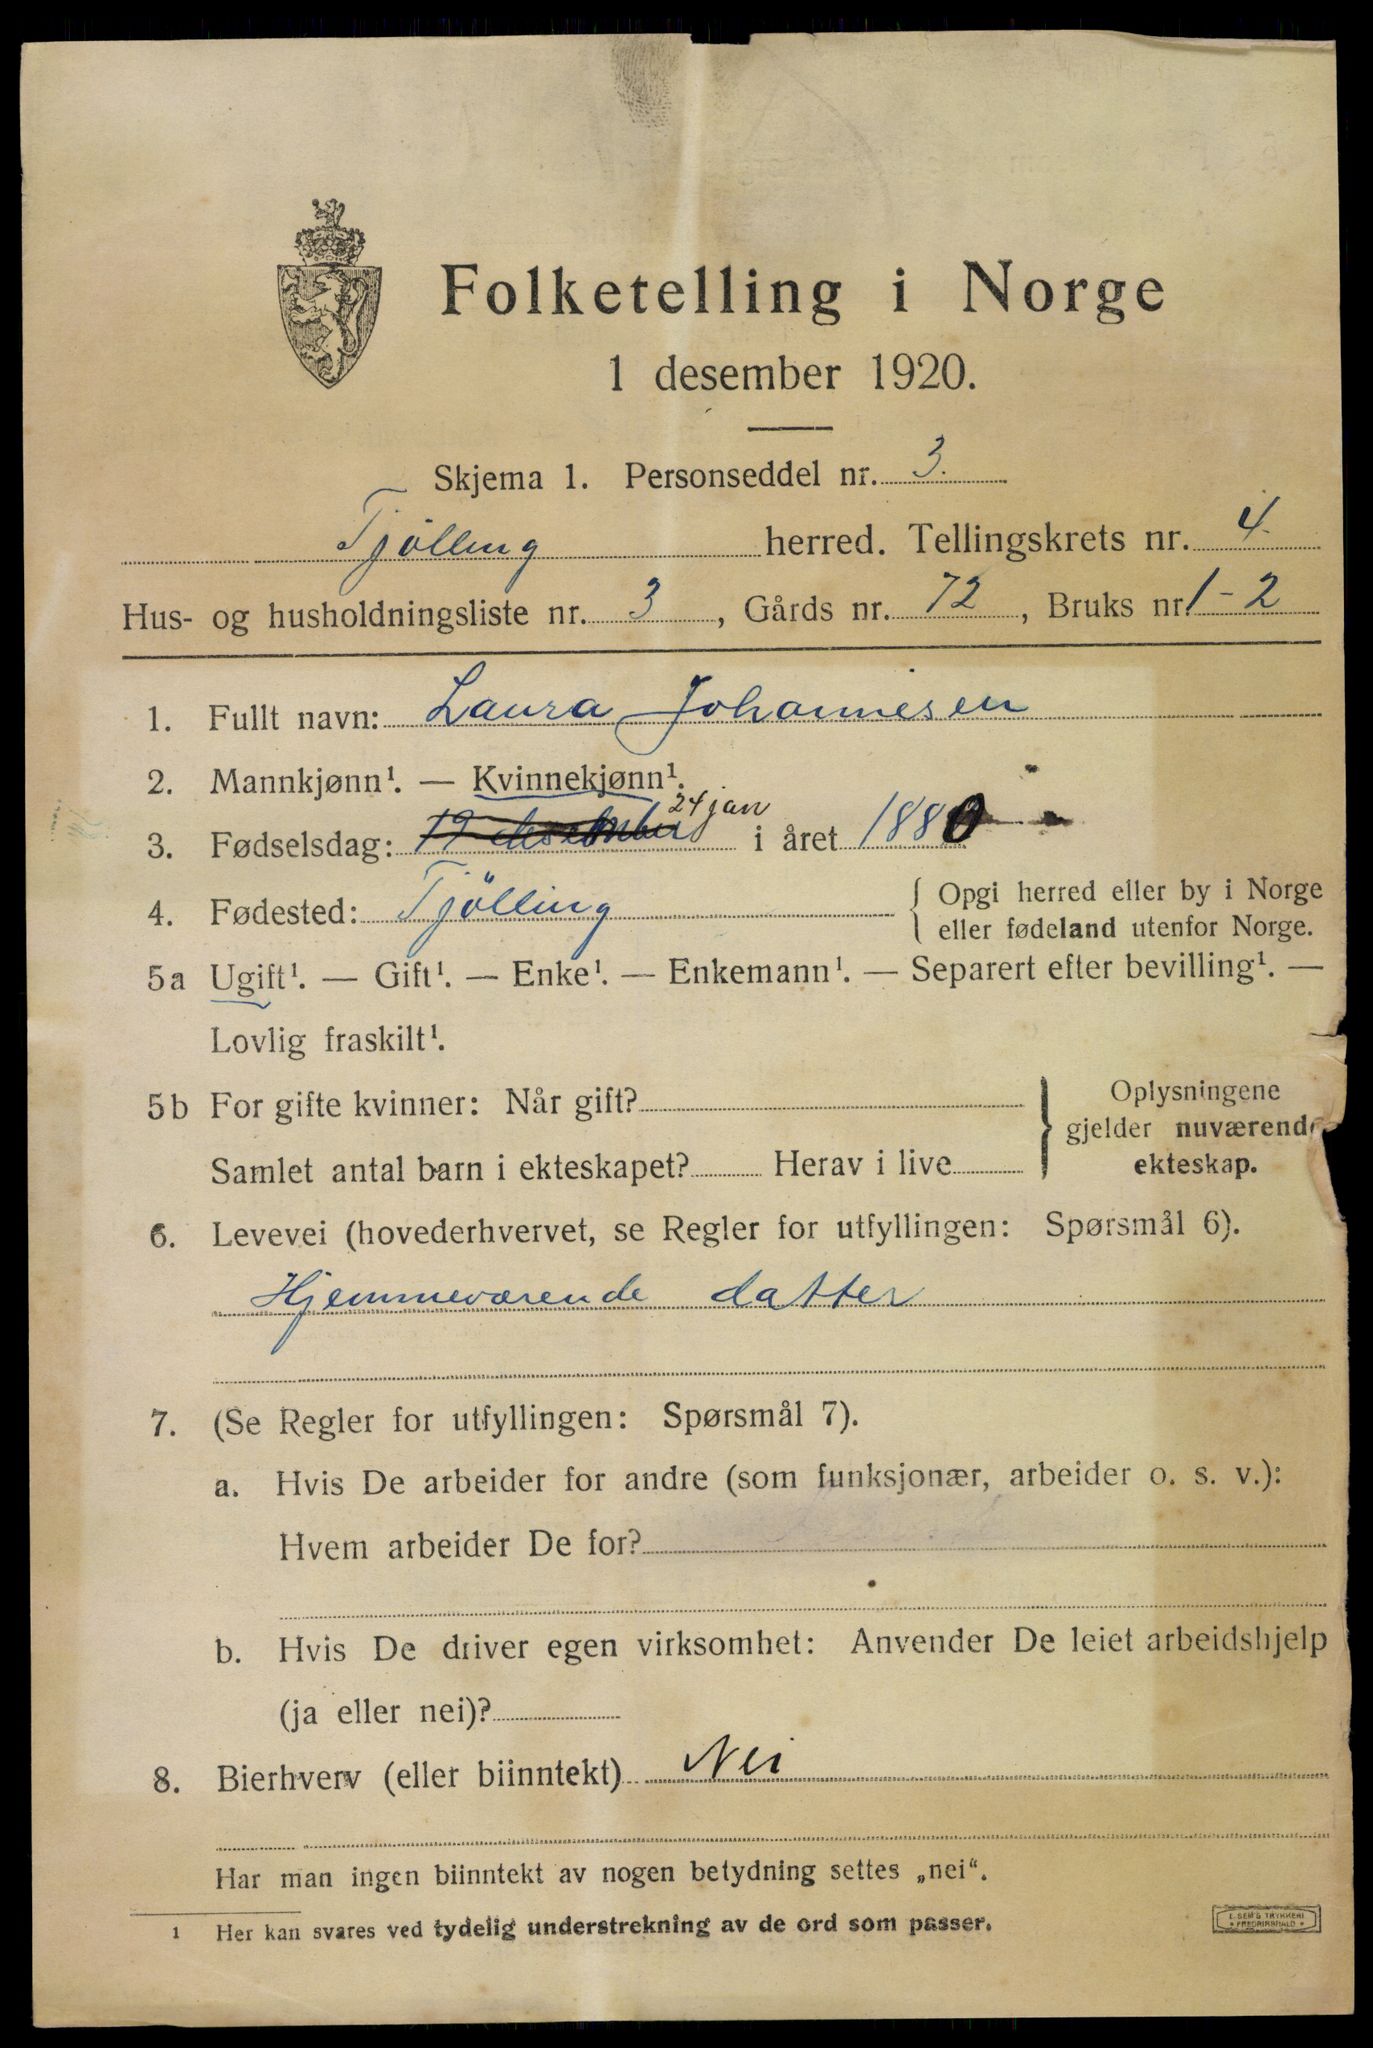 Folketelling i Norge
1 desember 1920.
Skjema 1. Personseddel nr. 3.
Tjölling herred. Tellingskrets nr. 4
Hus- og husholdningsliste nr. 3, Gårds nr. 72, Bruks nr. 1-2
1. Fullt navn: Laura Johannesen
2. Mannkjønn¹. — Kvinnekjønn¹.
24 jan
3. Fødselsdag: 19 desember i året 1880
4. Fødested: Tjölling { Opgi herred eller by i Norge
eller fødeland utenfor Norge.
5a Ugift¹. — Gift¹. — Enke¹. — Enkemann¹. — Separert efter bevilling¹. —
Lovlig fraskilt¹.
5b For gifte kvinner: Når gift? } Oplysningene
gjelder nuværende
Samlet antal barn i ekteskapet? Herav i live ekteskap.
6. Levevei (hovederhvervet, se Regler for utfyllingen: Spørsmål 6).
Hjemmeværende datter
7. (Se Regler for utfyllingen: Spørsmål 7).
a. Hvis De arbeider for andre (som funksjonær, arbeider o. s. v.):
Hvem arbeider De for?
b. Hvis De driver egen virksomhet: Anvender De leiet arbeidshjelp
(ja eller nei)?
8. Bierhverv (eller biinntekt) Nei
Har man ingen biinntekt av nogen betydning settes „nei“.
1 Her kan svares ved tydelig understrekning av de ord som passer.
E. SEM'S TRYKKERI
FREDRIKSHALD